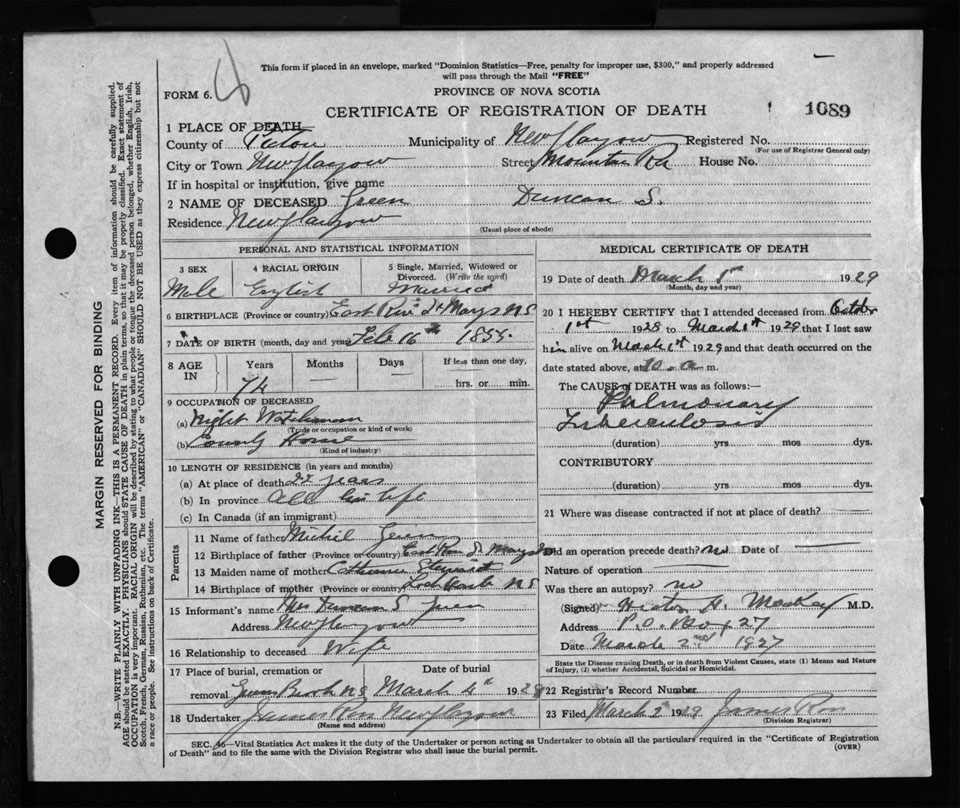 This form if placed in an envelope, marked "Dominion Statistics—Free, penalty for improper use, $300," and properly addressed
will pass through the Mail "FREE"
FORM 6.
PROVINCE OF NOVA SCOTIA
CERTIFICATE OF REGISTRATION OF DEATH
1089
1 PLACE OF DEATH
County of Pictou Municipality of New Glasgow Registered No.
(For use of Registrar General only)
City or Town New Glasgow Street Mountain Rd House No.
If in hospital or institution, give name
2 NAME OF DECEASED Green Duncan S.
Residence New Glasgow
(Usual place of abode)
PERSONAL AND STATISTICAL INFORMATION
3 SEX 4 RACIAL ORIGIN 5 Single, Married, Widowed or
Divorced. (Write the word)
Male English Married
6 BIRTHPLACE (Province or country) East River St Marys N S
7 DATE OF BIRTH (month, day and year) Feb 16th 1855
8 AGE IN Years Months Days If less than one day,
74 — — hrs. or min.
9 OCCUPATION OF DECEASED
(a) Night Watchman
(Trade or occupation or kind of work)
(b) County Home
(Kind of industry)
10 LENGTH OF RESIDENCE (in years and months)
(a) At place of death 22 years
(b) In province all his life
(c) In Canada (if an immigrant)
Parents
11 Name of father
12 Birthplace of father (Province or country) East River St Marys
13 Maiden name of mother Catherine Stewart
14 Birthplace of mother (Province or country) N S
15 Informant's name Mrs Duncan S Green
Address New Glasgow
16 Relationship to deceased Wife
17 Place of burial, cremation or Date of burial
removal N S March 4th 1929
18 Undertaker James Ross New Glasgow
(Name and address)
MEDICAL CERTIFICATE OF DEATH
19 Date of death March 1st 1929
(Month, day and year)
20 I HEREBY CERTIFY that I attended deceased from October
1st 1928 to March 1st 1929 that I last saw
him alive on March 1st 1929 and that death occurred on the
date stated above, at 10 a m.
The CAUSE of DEATH was as follows:—
Pulmonary
Tuberculosis
(duration) yrs mos dys.
CONTRIBUTORY
(duration) yrs. mos. dys.
21 Where was disease contracted if not at place of death? —
Did an operation precede death? no Date of —
Nature of operation —
Was there an autopsy? no
(Signed) H. MacKay M.D.
Address P.O. Box 27
Date March 2nd 1927
State the Disease causing Death, or in death from Violent Causes, state (1) Means and Nature
of Injury, (2) whether Accidental, Suicidal or Homicidal.
22 Registrar's Record Number
23 Filed March 2nd 1929 James Ross
(Division Registrar)
SEC. 46—Vital Statistics Act makes it the duty of the Undertaker or person acting as Undertaker to obtain all the particulars required in the "Certificate of Registration
of Death" and to file the same with the Division Registrar who shall issue the burial permit.
(OVER)
MARGIN RESERVED FOR BINDING
N.B.—WRITE PLAINLY WITH UNFADING INK—THIS IS A PERMANENT RECORD. Every item of information should be carefully supplied.
AGE should be stated EXACTLY. PHYSICIANS should STATE CAUSE OF DEATH in plain terms, so that it may be properly classified. Exact statement of
OCCUPATION is very important. RACIAL ORIGIN will be described by stating to what people or tongue the deceased person belonged, whether English, Irish,
Scotch, French, German, Russian, Ruthenian, etc. The terms "AMERICAN" or "CANADIAN" SHOULD NOT BE USED as they express citizenship but not
a race or people. See instructions on back of Certificate.